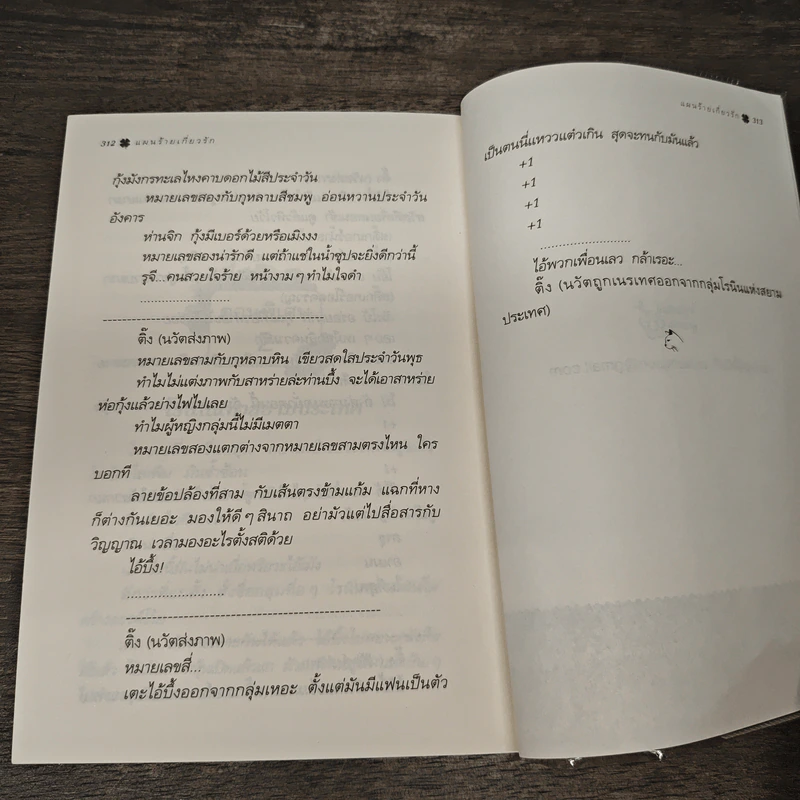 312 ♣ แผนร้ายเกี่ยวรัก
กุ้งมังกรทะเลไหงคาบดอกไม้สีประจำวัน
หมายเลขสองกับกุหลาบสีชมพู อ่อนหวานประจำวัน
อังคาร
ห่านจิก กุ้งมีเบอร์ด้วยหรือเมิงงง
หมายเลขสองน่ารักดี แต่ถ้าแช่ในน้ำซุปจะยิ่งดีกว่านี้
รุจี...คนสวยใจร้าย หน้างามๆ ทำไมใจดำ
........................
ติ๊ง (นวัตส่งภาพ)
หมายเลขสามกับกุหลาบหิน เขียวสดใสประจำวันพุธ
ทำไมไม่แต่งภาพกับสาหร่ายล่ะท่านบึ้ง จะได้เอาสาหร่าย
ห่อกุ้งแล้วย่างไฟไปเลย
ทำไมผู้หญิงกลุ่มนี้ไม่มีเมตตา
หมายเลขสองแตกต่างจากหมายเลขสามตรงไหน ใคร
บอกที
ลายข้อปล้องที่สาม กับเส้นตรงข้ามแก้ม แฉกที่หาง
ก็ต่างกันเยอะ มองให้ดีๆ สินาถ อย่ามัวแต่ไปสื่อสารกับ
วิญญาณ เวลามองอะไรตั้งสติด้วย
ไอ้บึ้ง!
..........................
ติ๊ง (นวัตส่งภาพ)
หมายเลขสี่...
เตะไอ้บึ้งออกจากกลุ่มเหอะ ตั้งแต่มันมีแฟนเป็นตัว
แผนร้ายเกี่ยวรัก ♣ 313
เป็นตนนี่แหววแต๋วเกิน สุดจะทนกับมันแล้ว
+1
+1
+1
+1
........................
ไอ้พวกเพื่อนเลว กล้าเรอะ...
ติ๊ง (นวัตถูกเนรเทศออกจากกลุ่มโรนินแห่งสยาม
ประเทศ)